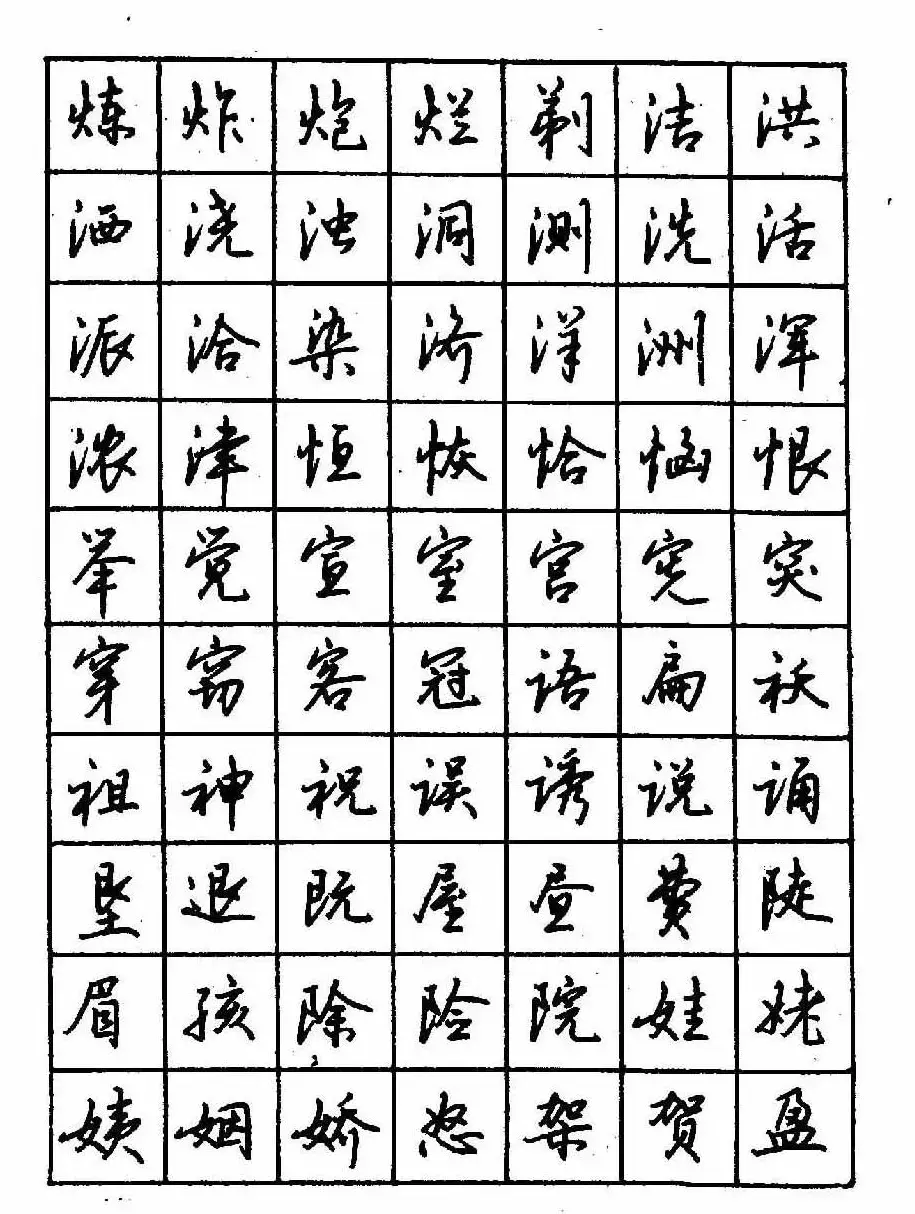 炼炸炮烂剃洁洪
洒浇浊洞测洗活
派洽染济洋洲浑
浓津恒恢恰恼恨
举觉宣室宫宪突
穿窃客冠语扁袄
祖神祝误诱说诵
垦退既屋昼费陡
眉孩除险院娃姥
姨姻娇怒架贺盈